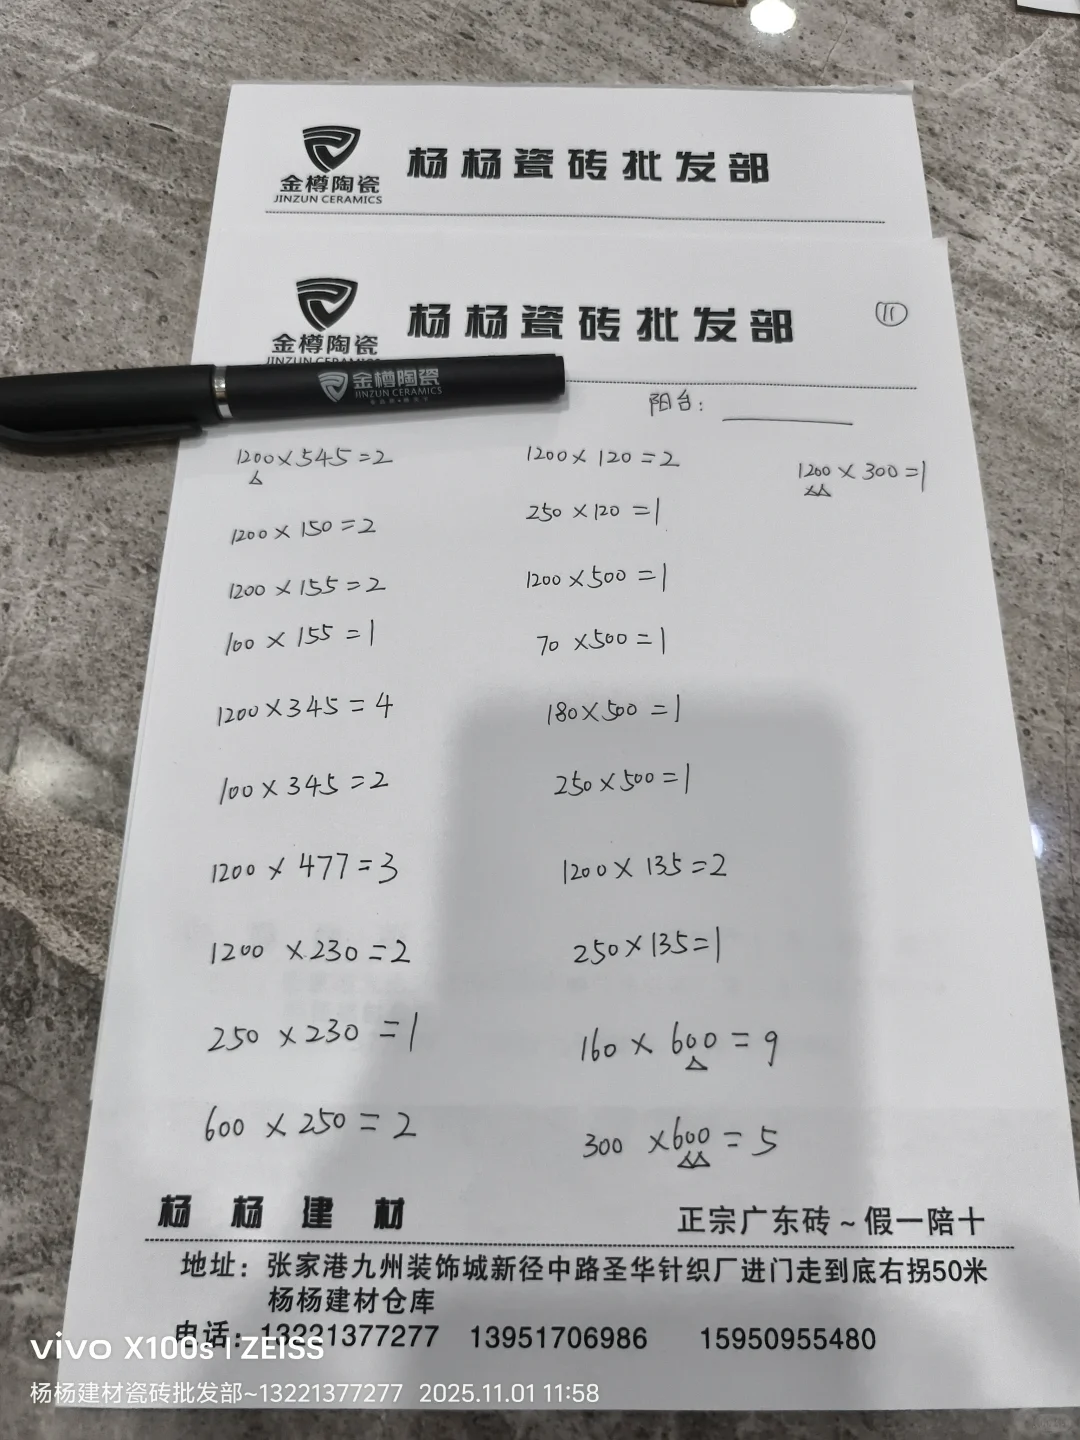 金樽陶瓷
JINZUN CERAMICS
杨杨瓷砖批发部
金樽陶瓷
JINZUN CERAMICS
杨杨瓷砖批发部
⑪
金樽陶瓷
JINZUN CERAMICS
阳台：
1200×545=2
1200×150=2
1200×155=2
100×155=1
1200×345=4
100×345=2
1200×477=3
1200×230=2
250×230=1
600×250=2
1200×120=2
250×120=1
1200×500=1
70×500=1
180×500=1
250×500=1
1200×135=2
250×135=1
160×600=9
300×600=5
1200×300=1
杨杨建材
正宗广东砖~假一陪十
地址：张家港九州装饰城新径中路圣华针织厂进门走到底右拐50米
杨杨建材仓库
电话：13221377277 13951706986 15950955480
vivo X100s | ZEISS
杨杨建材瓷砖批发部~13221377277 2025.11.01 11:58